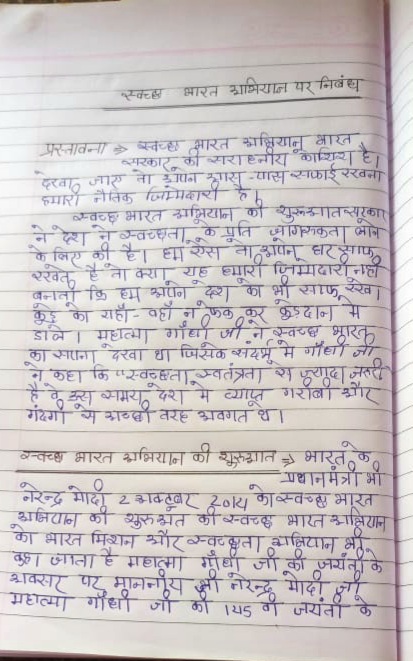 स्वच्छ भारत अभियान पर निबंध
प्रस्तावना ⇒ स्वच्छ भारत अभियान भारत
सरकार की सराहनीय कोशिश है।
देखा जाए तो अपने आस-पास सफाई रखना
हमारी नैतिक जिम्मेदारी है।
स्वच्छ भारत अभियान की शुरुआत सरकार
ने देश में स्वच्छता के प्रति जागरूकता लाने
के लिए की है। हम ऐसे तो अपने घर साफ
रखते है तो क्या यह हमारी जिम्मेदारी नहीं
बनती कि हम अपने देश को भी साफ रखे।
कूड़े को यहाँ-वहाँ न फेंक कर कूड़ेदान में
डाले। महात्मा गाँधी जी ने स्वच्छ भारत
का सपना देखा था जिसके संदर्भ में गाँधी जी
ने कहा कि "स्वच्छता स्वतंत्रता से ज्यादा जरूरी
है वे उस समय देश में व्याप्त गरीबी और
गंदगी से अच्छी तरह अवगत थे।
स्वच्छ भारत अभियान की शुरुआत ⇒ भारत के
प्रधानमंत्री श्री
नरेन्द्र मोदी 2 अक्टूबर 2014 को स्वच्छ भारत
अभियान की शुरुआत की स्वच्छ भारत अभियान
को भारत मिशन और स्वच्छता अभियान भी
कहा जाता है महात्मा गाँधी जी की जयंती के
अवसर पर माननीय श्री नरेन्द्र मोदी जी
महात्मा गाँधी जी की 145 वी जयंती के